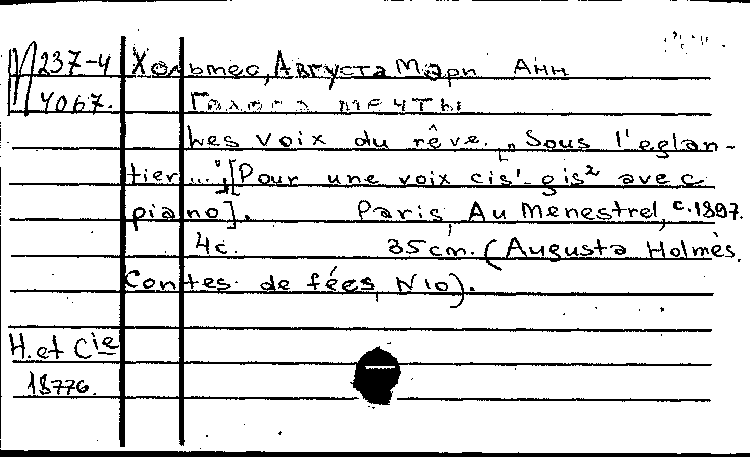 М237-4 Хольмес, Августа Мари Анн
4067. Голоса мечты
Les voix du rêve. ["Sous l'eglan-
tier..."] [Pour une voix cis'-gis² avec
piano]. Paris, Au Menestrel, c.1897.
4c. 35cm. (Augusta Holmès.
Contes de fées, N10).
H. et Cie
18776.